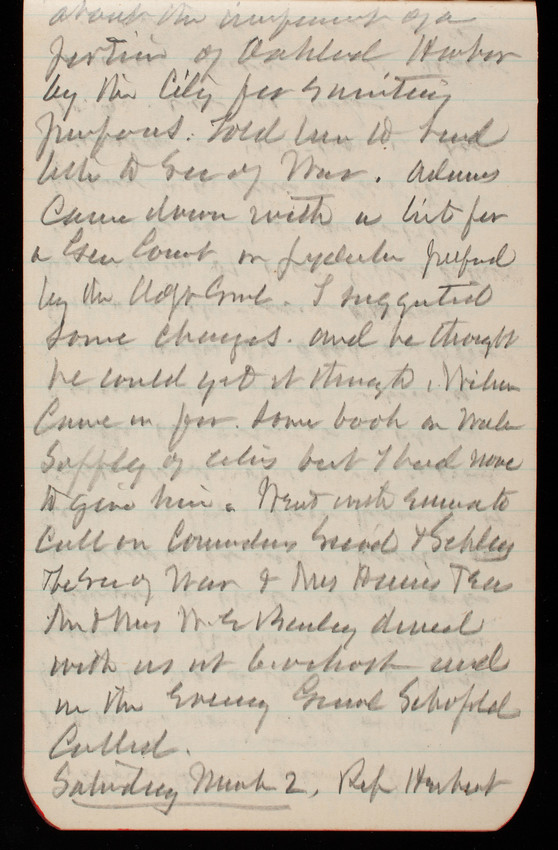 about the improvement of a
portion of Oakland Harbor
by the City for Sanitary
purposes. Told him to send
letter to Sec of War. Adams
Came down with a list for
a Gen Court or
by the . I suggested
some changes. and he thought
he could get it through, Wilson
Came in for some book on Water
Supply of cities but I had none
to give him. Went with Emma to
Call on Commdrs & Schley
The Sec of War & Mrs
Mr & Mrs dined
with us at and
in the Evening Genrl Schofield
Called.
Saturday March 2, Rep Herbert